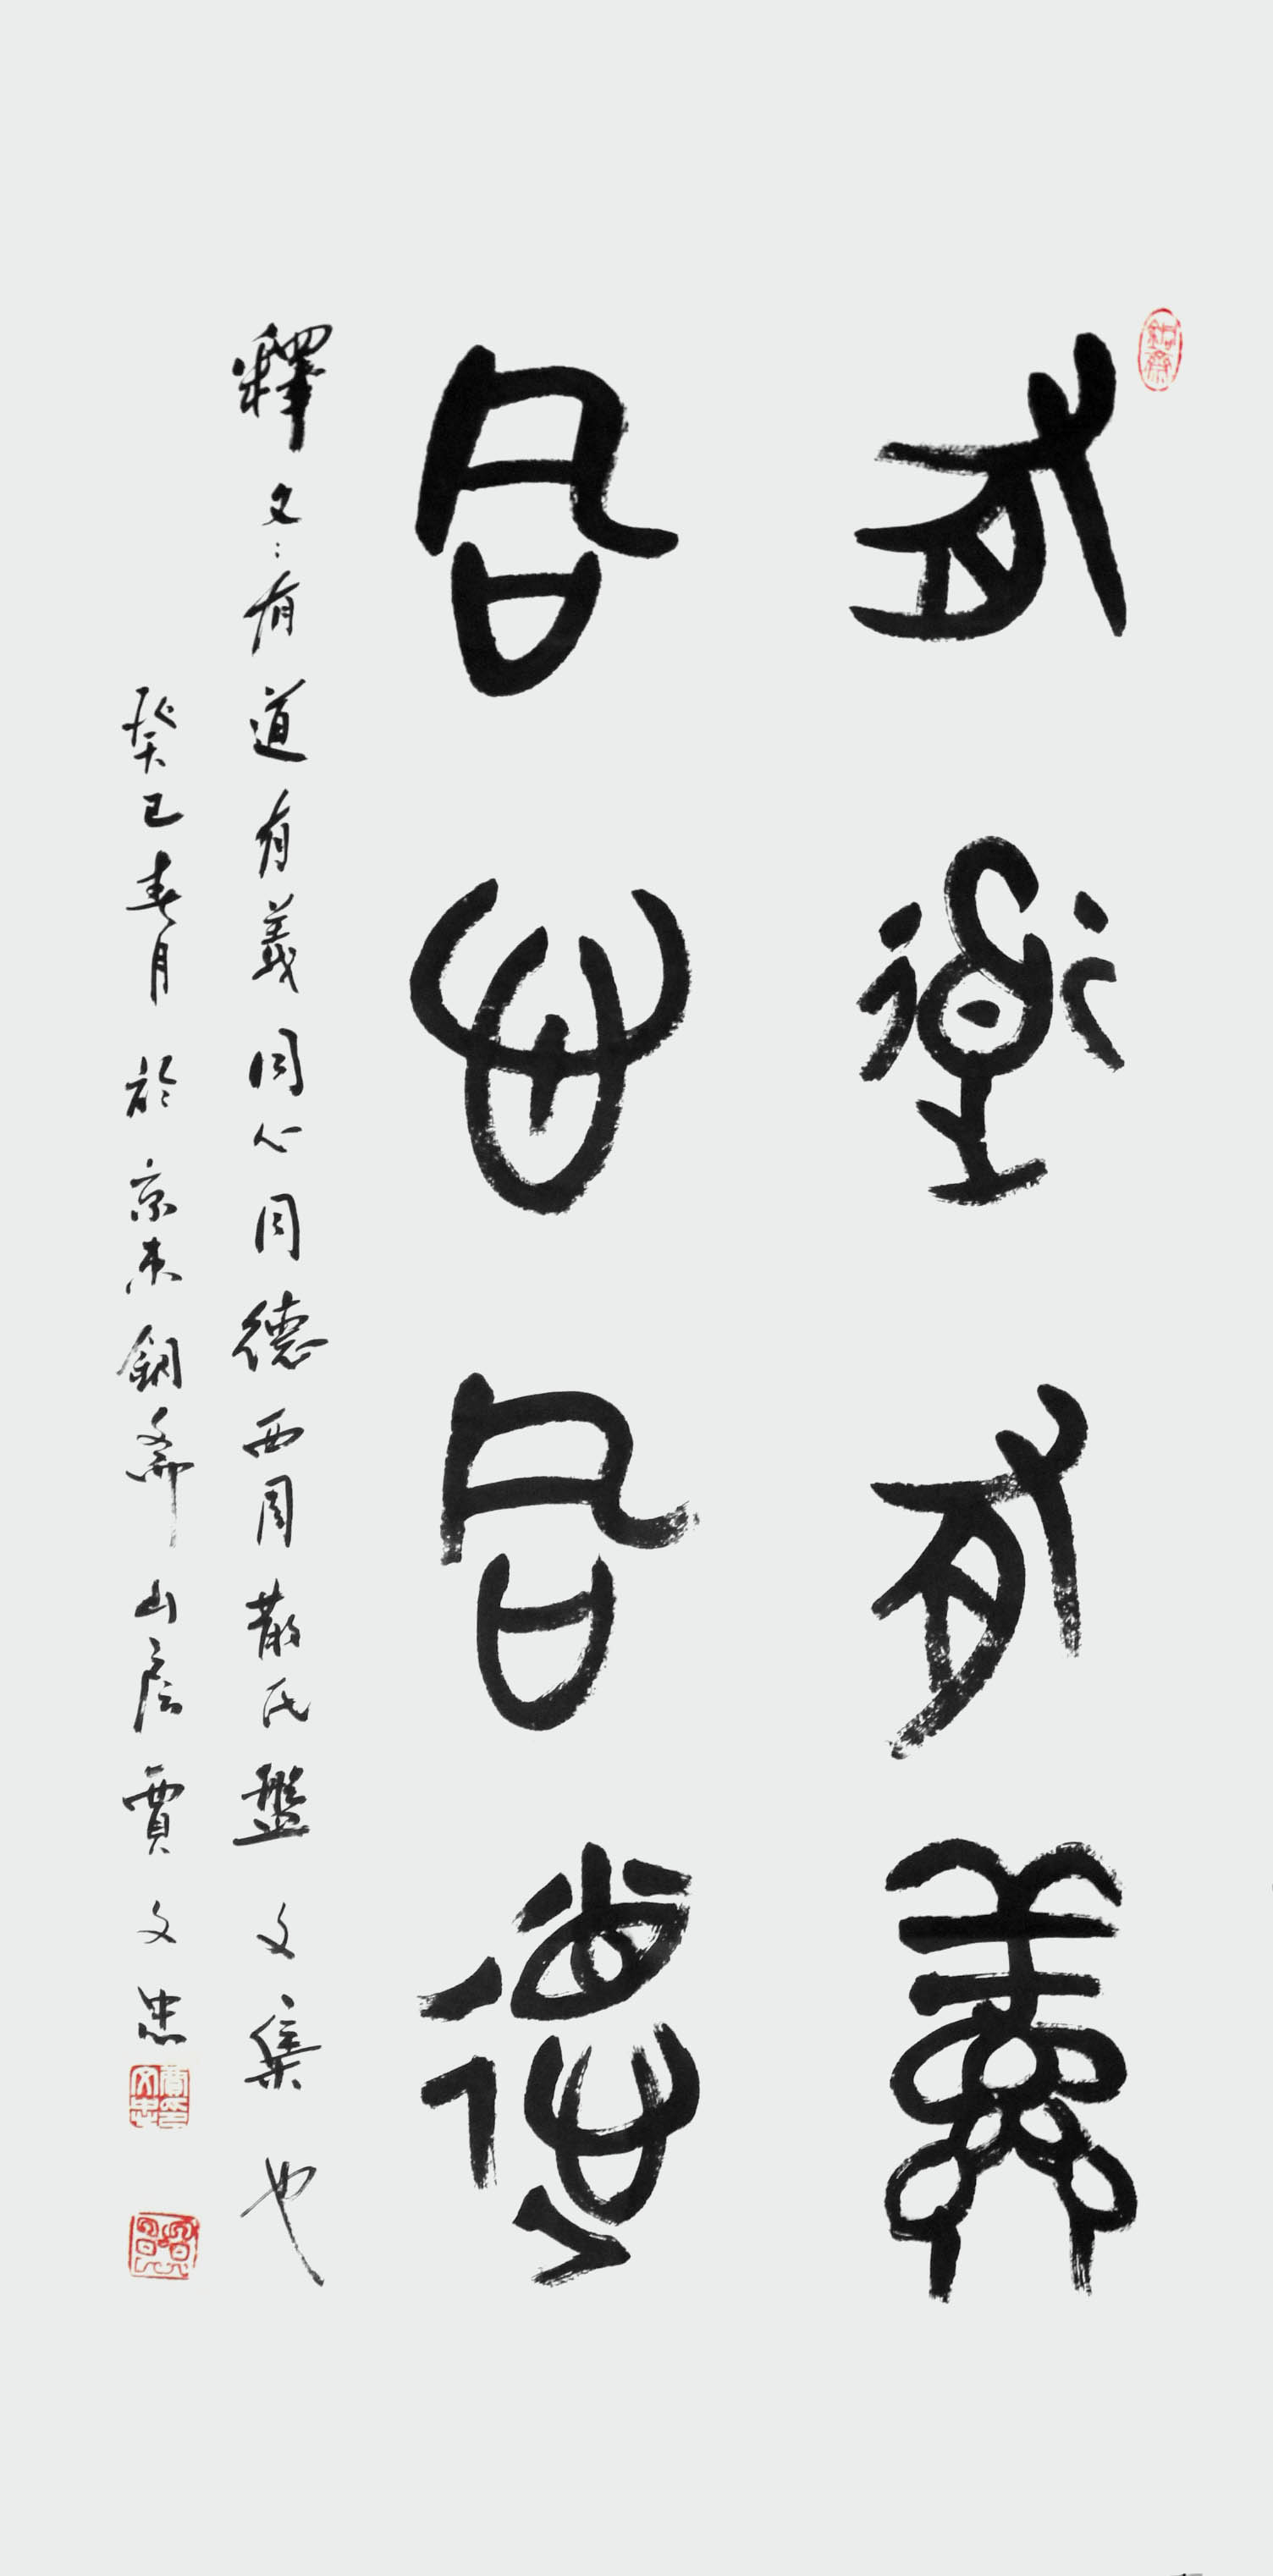 有道有義
同心同德
釋文：有道有義同心同德西周散氏盤文集也
癸巳春月於京東銅齋山房賈文忠
銅齋
賈文忠印